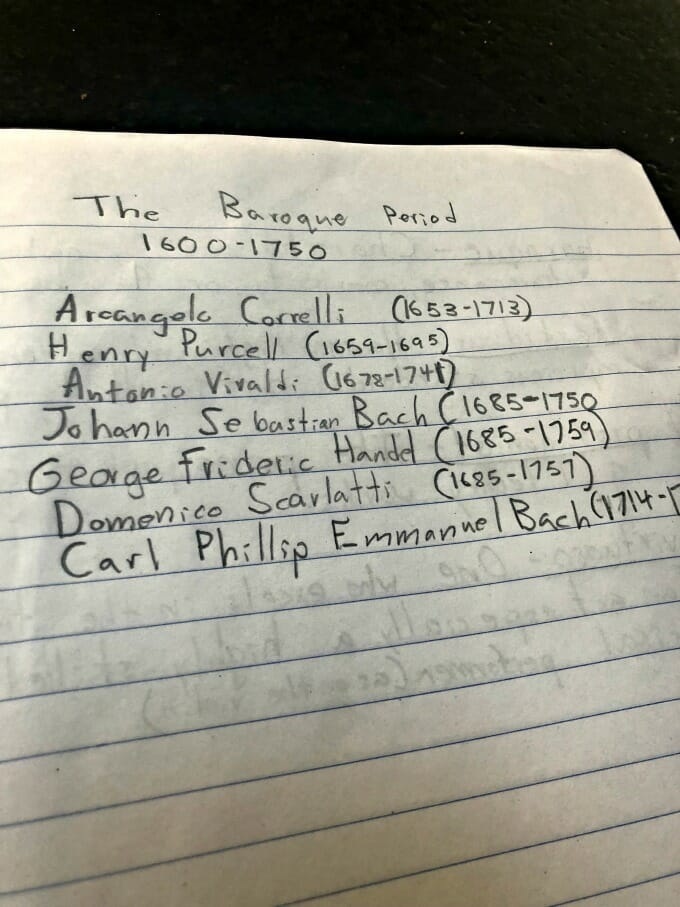 The Baroque Period
1600-1750
Arcangelo Correlli (1653-1713)
Henry Purcell (1659-1695)
Antonio Vivaldi (1678-1741)
Johann Sebastian Bach (1685-1750
George Frideric Handel (1685-1759)
Domenico Scarlatti (1685-1757)
Carl Phillip Emmanuel Bach (1714-1